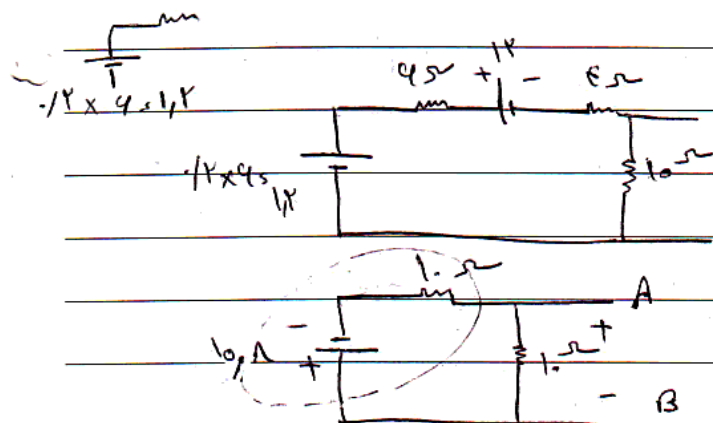 ۰/۲ × ۶ = ۱,۲
۶Ω + ۱۲ - ۴Ω
۰/۲ × ۶ =
۱,۲
۱۰Ω
۱۰Ω
A
-
+
۱۰,۸
+
۱۰Ω
-
B